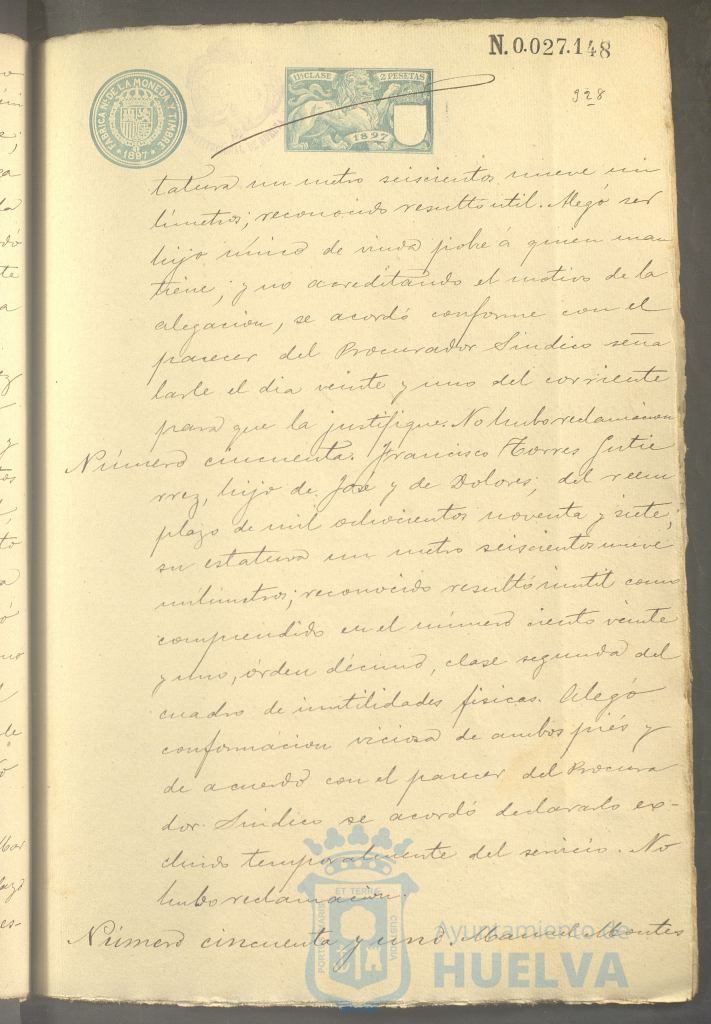 N. 0.027.148
928
FABRICA Nal. DE LA MONEDA Y TIMBRE
1897
11ª CLASE 2 PESETAS
1897
tatura un metro seiscientos nueve mi
límetros; reconocido resultó util. Alegó ser
hijo único de viuda pobre á quien man
tiene; y no acreditando el motivo de la
alegacion, se acordó conforme con el
parecer del Procurador Síndico seña
larle el dia veinte y uno del corriente
para que la justifique. No hubo reclamacion
Número cincuenta. Francisco Torres Gutie
rrez, hijo de José y de Dolores; del reem
plazo de mil ochocientos noventa y siete;
su estatura un metro seiscientos nueve
milímetros; reconocido resultó inutil como
comprendido en el número ciento veinte
y uno, órden décimo, clase segunda del
cuadro de inutilidades físicas. Alegó
conformacion viciosa de ambos piés y
de acuerdo con el parecer del Procura
dor Síndico se acordó declararlo ex-
cluido temporalmente del servicio. No
hubo reclamacion.
Número cincuenta y uno. Manuel Montes
PORTUS MARIS ET TERRAE CUSTODIA
Ayuntamiento de
HUELVA